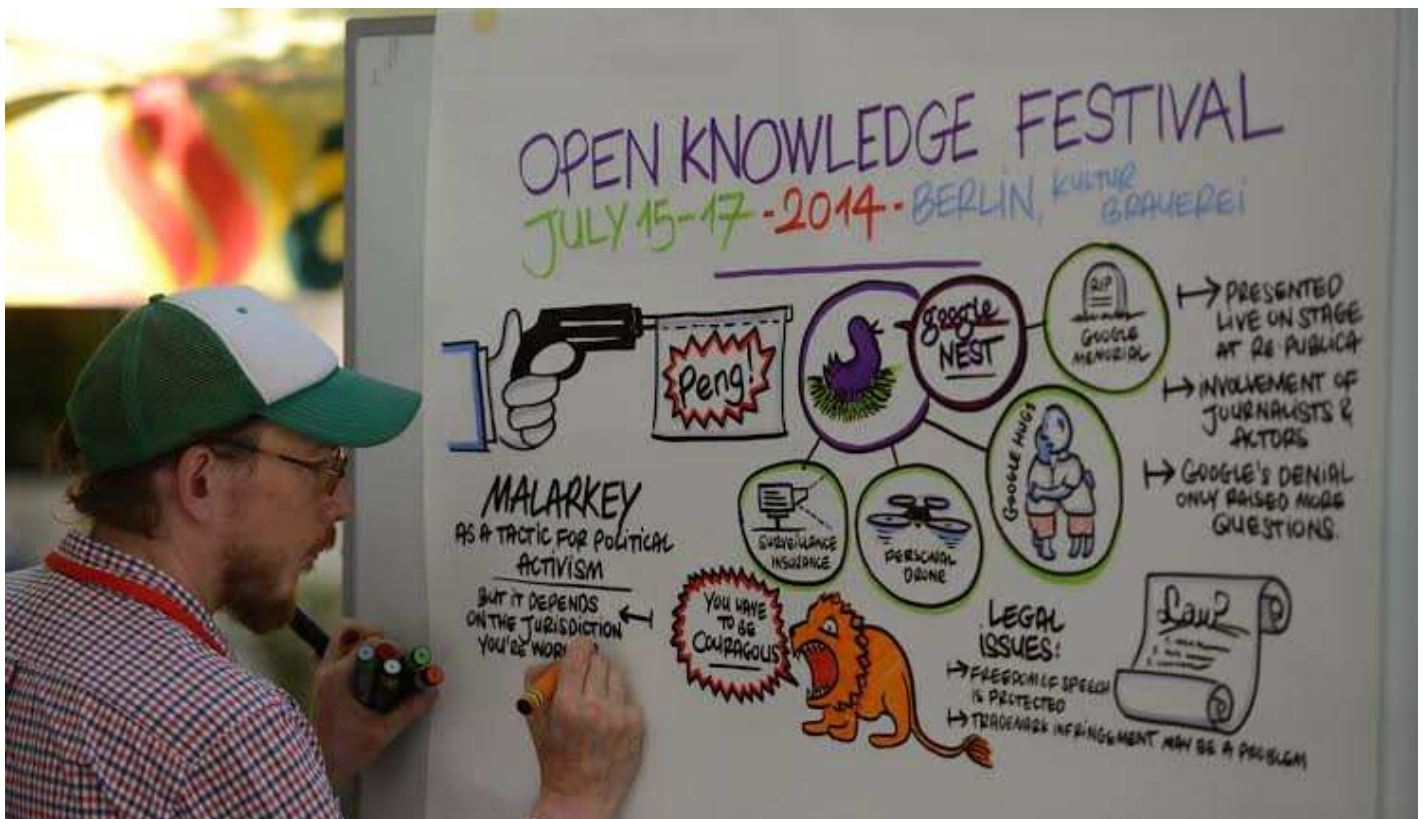 OPEN KNOWLEDGE FESTIVAL
JULY 15-17 - 2014 - BERLIN, KULTUR
BRAUEREI
Peng!
google
NEST
RIP
GOOGLE
MEMORIAL
GOOGLE HUGS
SURVEILLANCE
INSURANCE
PERSONAL
DRONE
PRESENTED
LIVE ON STAGE
AT RE:PUBLICA
INVOLVEMENT OF
JOURNALISTS &
ACTORS
GOOGLE'S DENIAL
ONLY RAISED MORE
QUESTIONS.
MALARKEY
AS A TACTIC FOR POLITICAL
ACTIVISM
BUT IT DEPENDS
ON THE JURISDICTION
YOU'RE
YOU HAVE
TO BE
COURAGOUS
LEGAL
ISSUES:
FREEDOM OF SPEECH
IS PROTECTED
TRADEMARK INFRINGEMENT MAY BE A PROBLEM